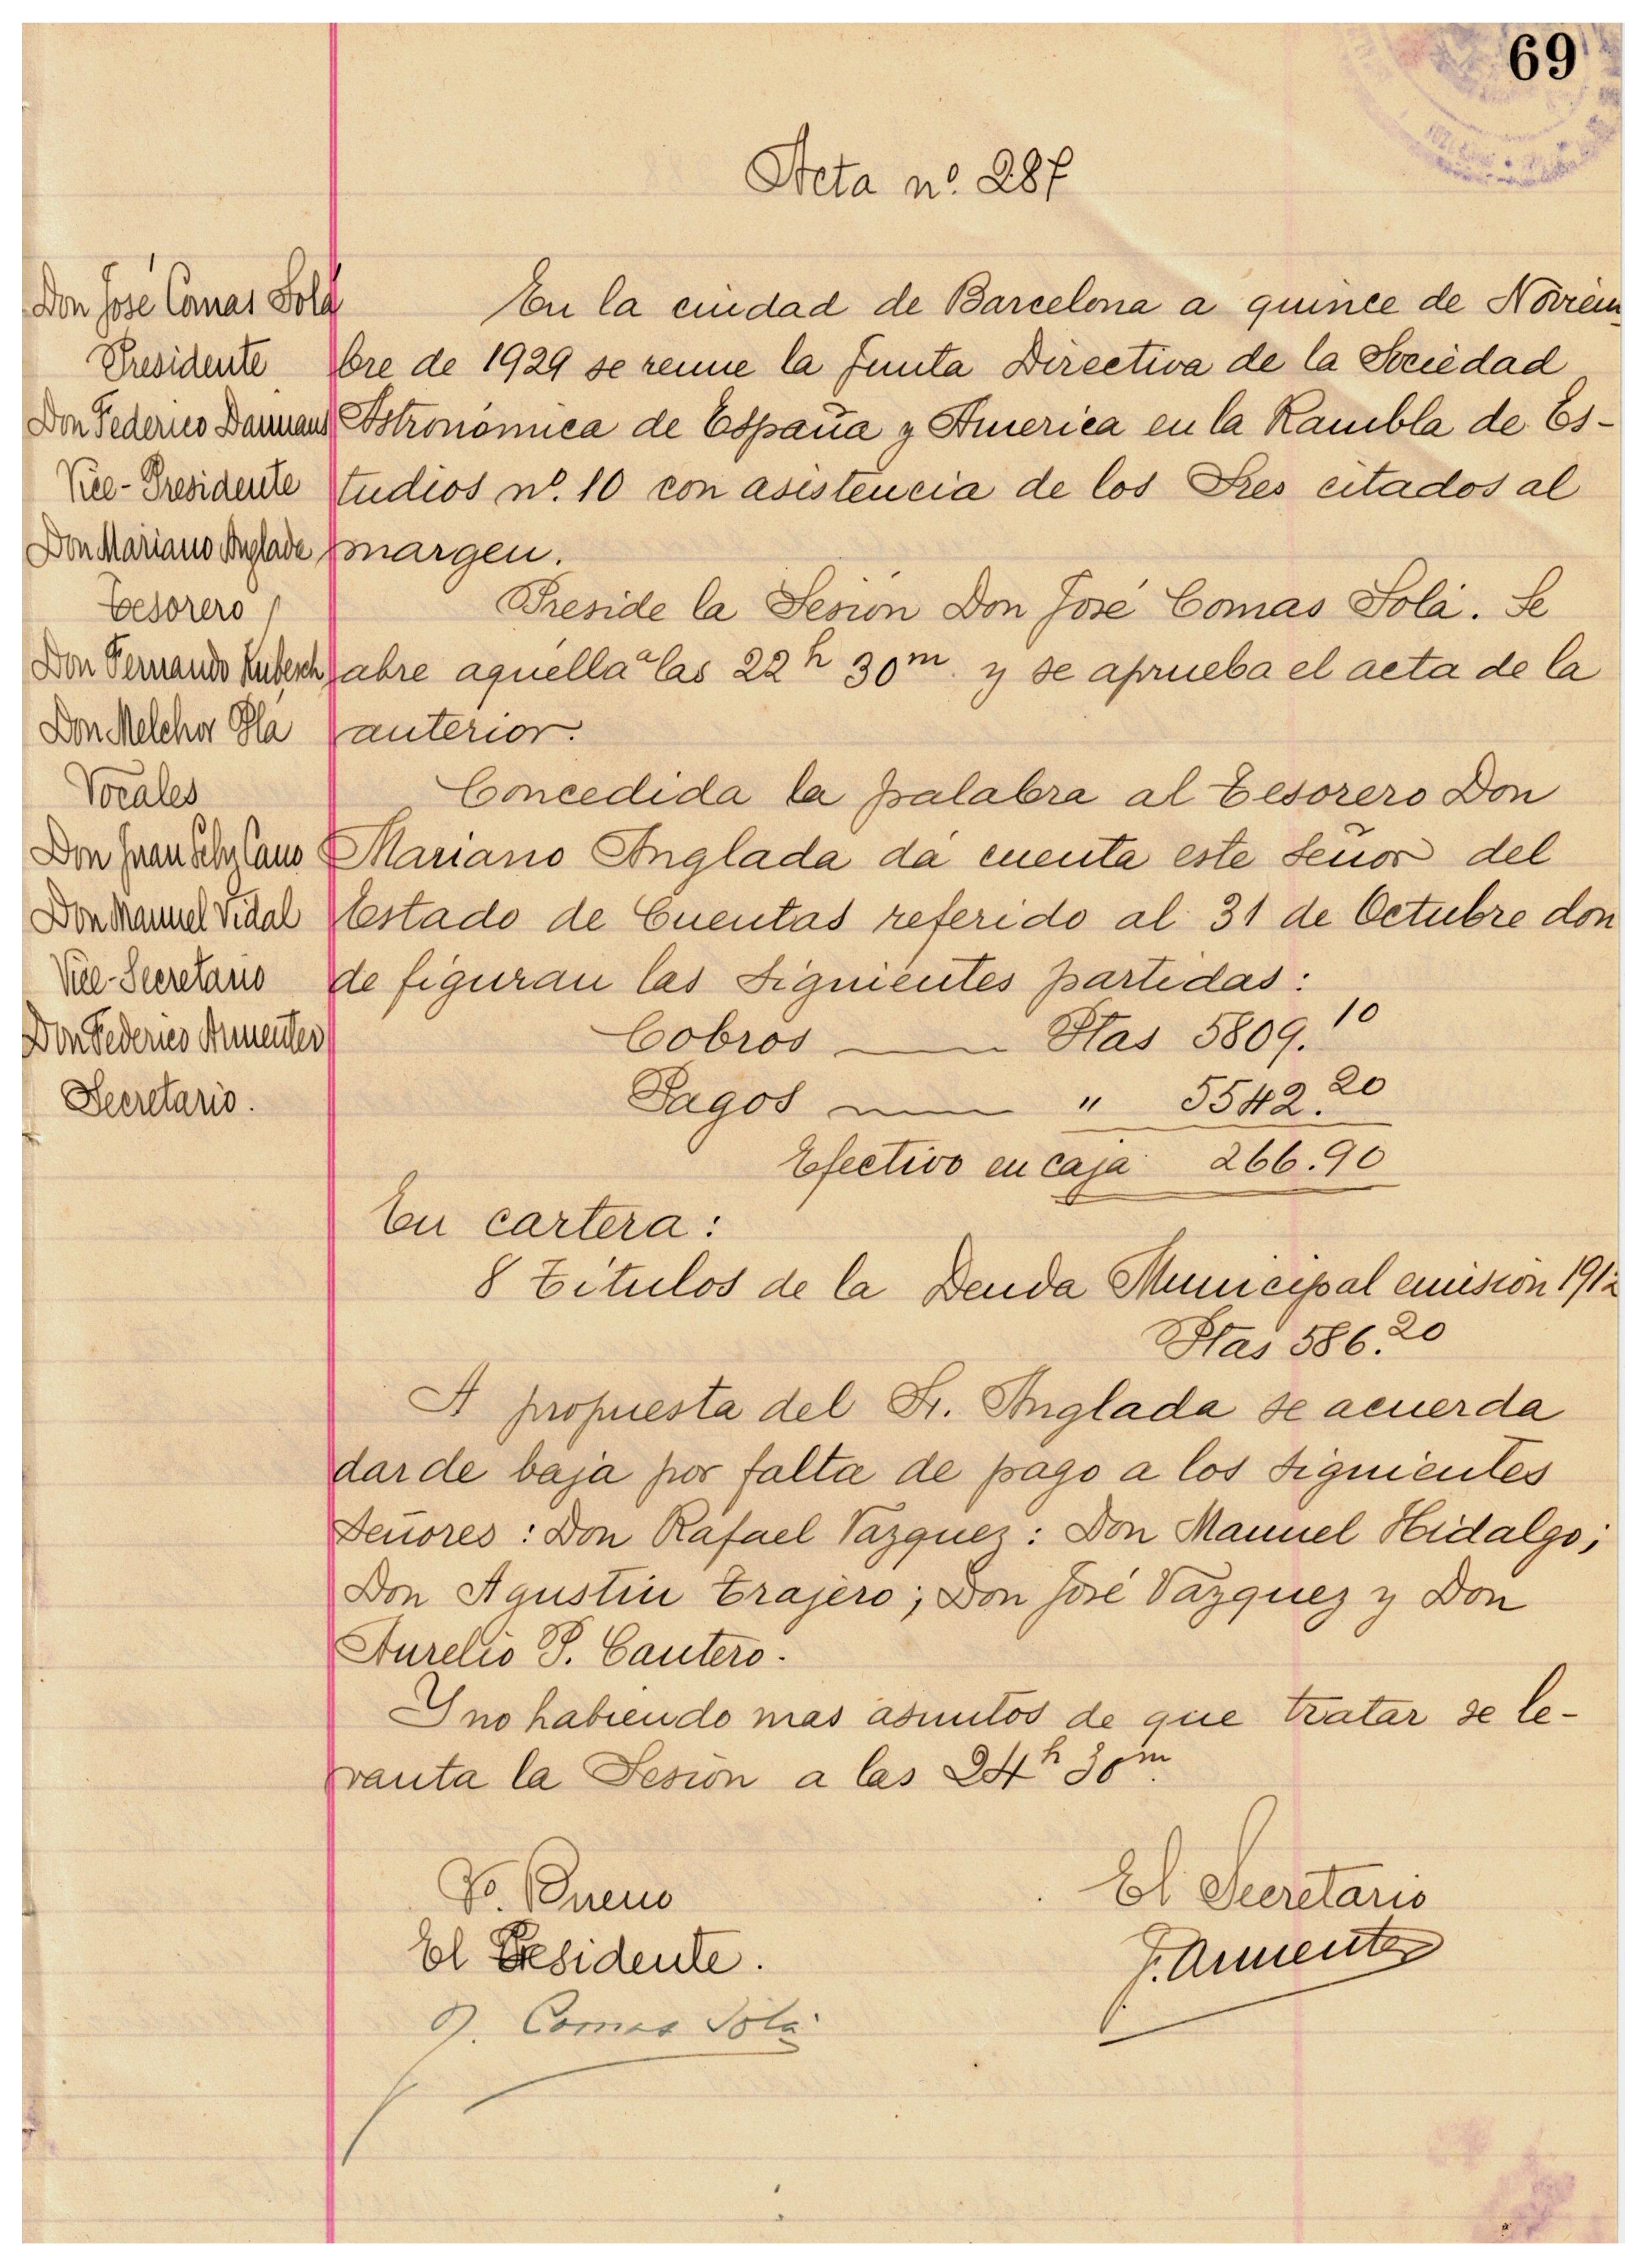 69
Acta nº. 287
Don José Comas Solá
Presidente
Don Federico Darmaus
Vice-Presidente
Don Mariano Anglada
Tesorero
Don Fernando Kubesch
Don Melchor Plá
Vocales
Don Juan
Don Manuel Vidal
Vice-Secretario
Don Federico Armenter
Secretario.
En la ciudad de Barcelona a quince de Noviem
bre de 1929 se reune la Junta Directiva de la Sociedad
Astronómica de España y America en la Rambla de Es-
tudios nº. 10 con asistencia de los Sres citados al
margen.
Preside la Sesión Don José Comas Solá. Se
abre aquella a las 22h 30m. y se aprueba el acta de la
anterior.
Concedida la palabra al Tesorero Don
Mariano Anglada da cuenta este Señor del
Estado de Cuentas referido al 31 de Octubre don
de figuran las siguientes partidas:
Cobros —— Ptas 5809.10
Pagos —— " 5542.20
Efectivo en caja 266.90
En cartera:
8 Titulos de la Deuda Municipal emisión 1912
Ptas 586.20
A propuesta del Sr. Anglada se acuerda
dar de baja por falta de pago a los siguientes
Señores: Don Rafael Vazquez: Don Manuel Hidalgo;
Don Agustin Trajero; Don José Vazquez y Don
Aurelio P. Cantero.
Y no habiendo mas asuntos de que tratar se le-
vanta la Sesión a las 24h 30m.
Vº. Bueno
El Presidente.
J. Comas Solá
El Secretario
F. Armenter